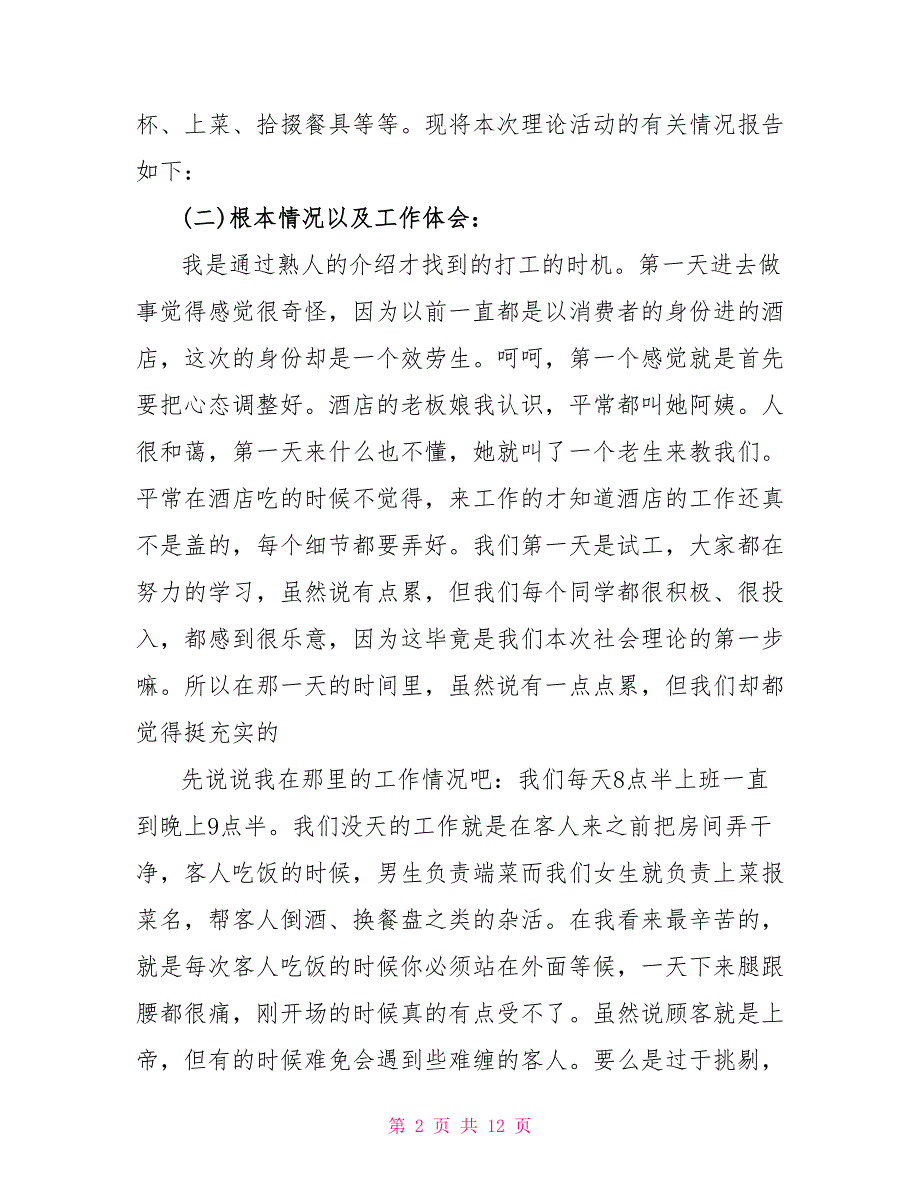 杯、上菜、拾掇餐具等等。现将本次理论活动的有关情况报告
如下：
(二)根本情况以及工作体会：
我是通过熟人的介绍才找到的打工的时机。第一天进去做
事觉得感觉很奇怪，因为以前一直都是以消费者的身份进的酒
店，这次的身份却是一个效劳生。呵呵，第一个感觉就是首先
要把心态调整好。酒店的老板娘我认识，平常都叫她阿姨。人
很和蔼，第一天来什么也不懂，她就叫了一个老生来教我们。
平常在酒店吃的时候不觉得，来工作的才知道酒店的工作还真
不是盖的，每个细节都要弄好。我们第一天是试工，大家都在
努力的学习，虽然说有点累，但我们每个同学都很积极、很投
入，都感到很乐意，因为这毕竟是我们本次社会理论的第一步
嘛。所以在那一天的时间里，虽然说有一点点累，但我们却都
觉得挺充实的
先说说我在那里的工作情况吧：我们每天8点半上班一直
到晚上9点半。我们没天的工作就是在客人来之前把房间弄干
净，客人吃饭的时候，男生负责端菜而我们女生就负责上菜报
菜名，帮客人倒酒、换餐盘之类的杂活。在我看来最辛苦的，
就是每次客人吃饭的时候你必须站在外面等候，一天下来腿跟
腰都很痛，刚开场的时候真的有点受不了。虽然说顾客就是上
帝，但有的时候难免会遇到些难缠的客人。要么是过于挑剔，
第 2 页 共 12 页